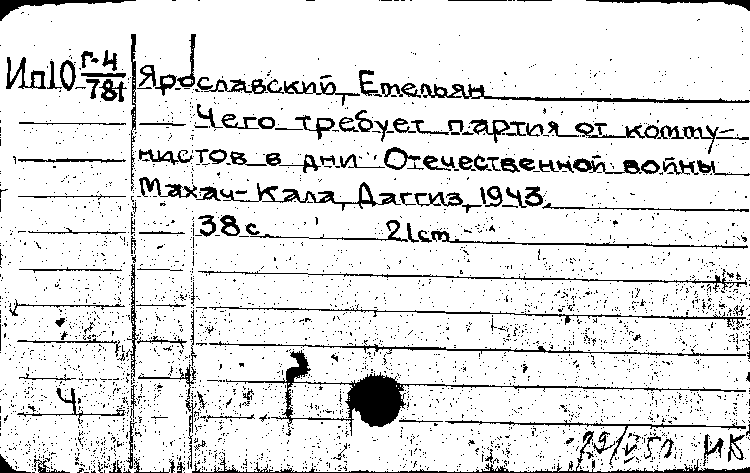 Ип10 Г-4/781 Ярославский, Емельян
Чего требует партия от комму-
нистов в дни Отечественной войны
Махач-Кала, Даггиз, 1943.
38 с. 21 cm.
4